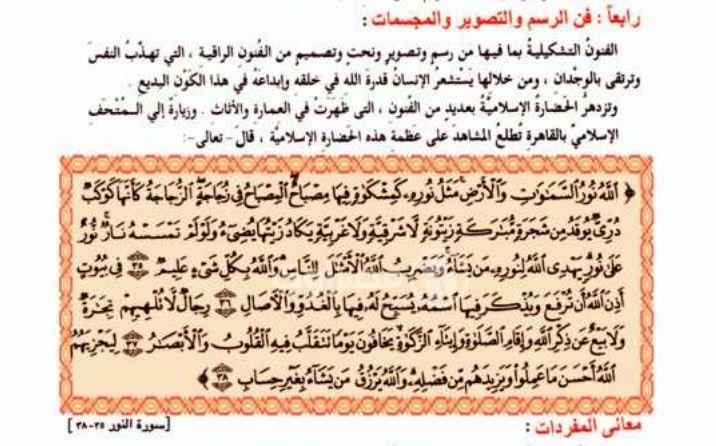 رابعاً : فن الرسم والتصوير والمجسمات :
الفنونُ التشكيليةُ بما فيها من رسم وتصوير ونحتٍ وتصميمٍ من الفنونِ الراقيةِ ، التي تهذّبُ النفسَ
وترتقى بالوجدَانِ ، ومن خلالها يَسْتشعرُ الإنسانُ قدرةَ الله في خلقه وإبداعَهُ في هذا الكَوْن البديع .
وتزدهرُ الحَضارةُ الإسلاميَّةُ بعديدٍ من الفنون ، التى ظَهَرَتْ في العمارة والأثاث . وزيارةٌ إلي المُتْحَفِ
الإسلاميّ بالقاهرة تُطلعُ المشاهدَ على عظمةِ هذه الحَضارةِ الإسلاميَّة ، قال – تعالى –:
﴿ اللَّهُ نُورُ السَّمَاوَاتِ وَالْأَرْضِ مَثَلُ نُورِهِ كَمِشْكَاةٍ فِيهَا مِصْبَاحٌ الْمِصْبَاحُ فِي زُجَاجَةٍ الزُّجَاجَةُ كَأَنَّهَا كَوْكَبٌ
دُرِّيٌّ يُوقَدُ مِن شَجَرَةٍ مُّبَارَكَةٍ زَيْتُونَةٍ لَّا شَرْقِيَّةٍ وَلَا غَرْبِيَّةٍ يَكَادُ زَيْتُهَا يُضِيءُ وَلَوْ لَمْ تَمْسَسْهُ نَارٌ نُّورٌ
عَلَى نُورٍ يَهْدِي اللَّهُ لِنُورِهِ مَن يَشَاءُ وَيَضْرِبُ اللَّهُ الْأَمْثَالَ لِلنَّاسِ وَاللَّهُ بِكُلِّ شَيْءٍ عَلِيمٌ ٣٥ فِي بُيُوتٍ
أَذِنَ اللَّهُ أَن تُرْفَعَ وَيُذْكَرَ فِيهَا اسْمُهُ يُسَبِّحُ لَهُ فِيهَا بِالْغُدُوِّ وَالْآصَالِ ٣٦ رِجَالٌ لَّا تُلْهِيهِمْ تِجَارَةٌ
وَلَا بَيْعٌ عَن ذِكْرِ اللَّهِ وَإِقَامِ الصَّلَاةِ وَإِيتَاءِ الزَّكَاةِ يَخَافُونَ يَوْمًا تَتَقَلَّبُ فِيهِ الْقُلُوبُ وَالْأَبْصَارُ ٣٧ لِيَجْزِيَهُمُ
اللَّهُ أَحْسَنَ مَا عَمِلُوا وَيَزِيدَهُم مِّن فَضْلِهِ وَاللَّهُ يَرْزُقُ مَن يَشَاءُ بِغَيْرِ حِسَابٍ ٣٨ ﴾
[سورة النور ٣٥-٣٨]
معانى المفردات :